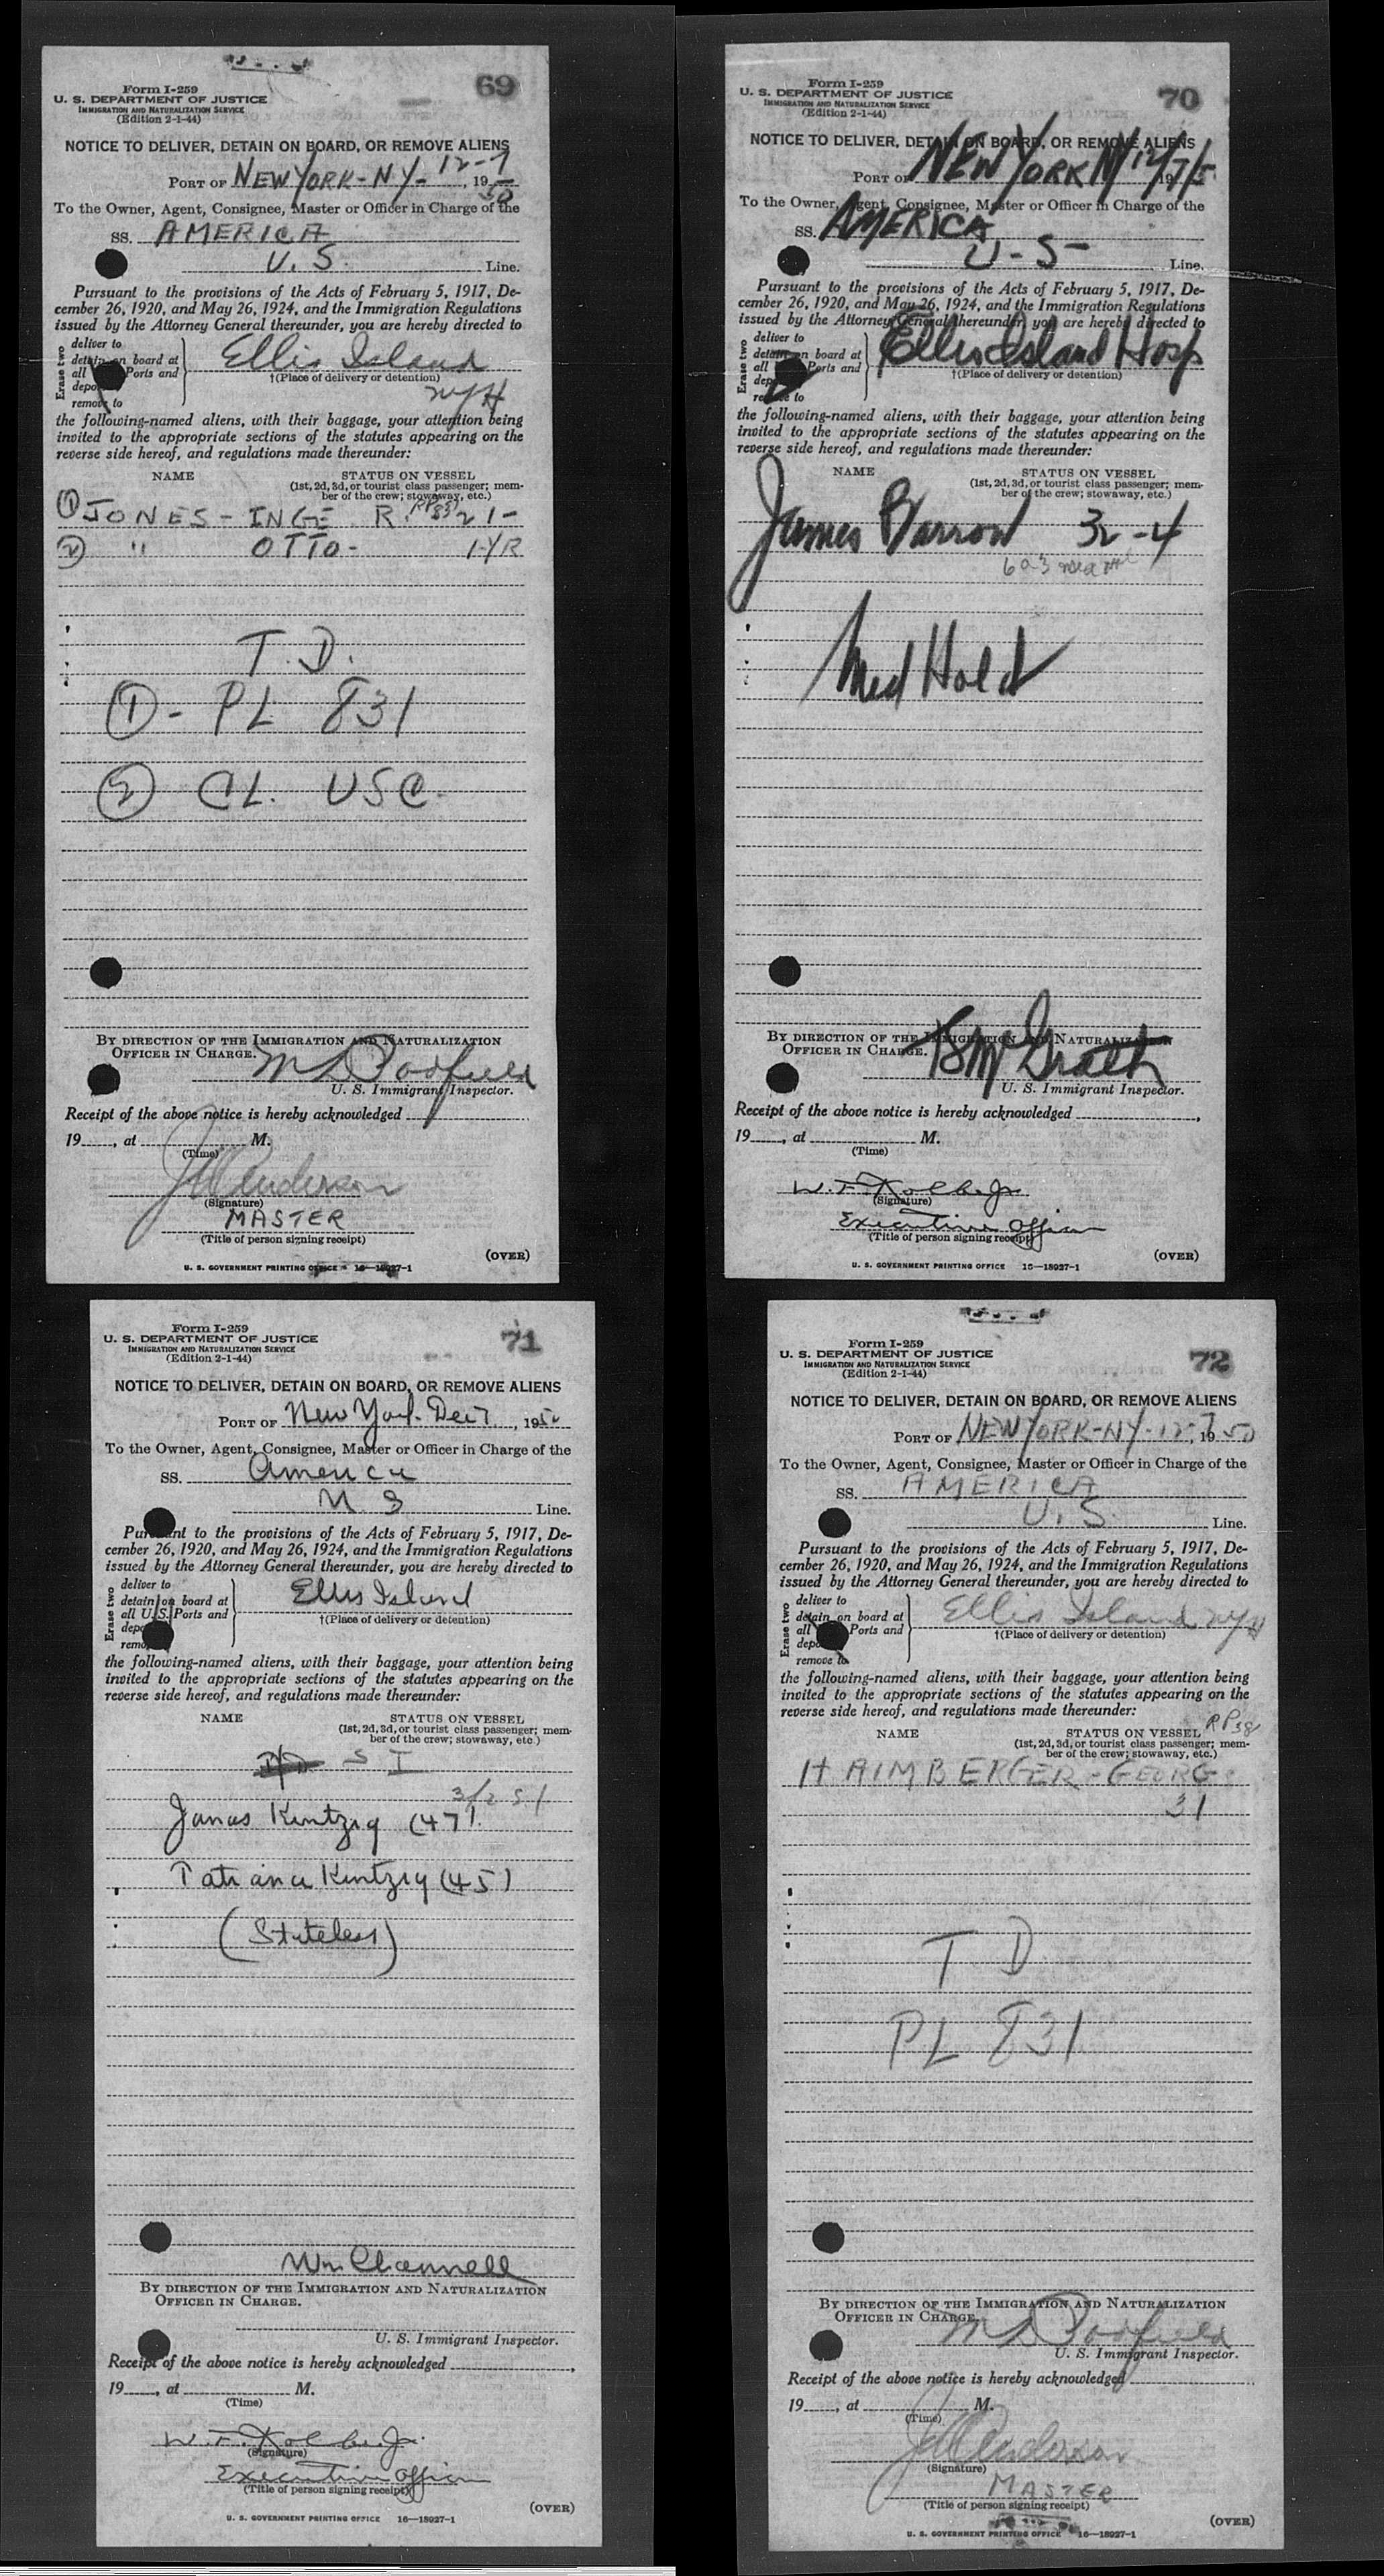 69
Form I-259
U. S. DEPARTMENT OF JUSTICE
IMMIGRATION AND NATURALIZATION SERVICE
(Edition 2-1-44)
NOTICE TO DELIVER, DETAIN ON BOARD, OR REMOVE ALIENS
PORT OF NEW YORK-NY- 12-7, 1950
To the Owner, Agent, Consignee, Master or Officer in Charge of the
SS. AMERICA
U. S. Line.
Pursuant to the provisions of the Acts of February 5, 1917, De-
cember 26, 1920, and May 26, 1924, and the Immigration Regulations
issued by the Attorney General thereunder, you are hereby directed to
Erase two
deliver to
detain on board at
all Ports and
remove to
Ellis Island
†(Place of delivery or detention)
NYH
the following-named aliens, with their baggage, your attention being
invited to the appropriate sections of the statutes appearing on the
reverse side hereof, and regulations made thereunder:
NAME STATUS ON VESSEL
(1st, 2d, 3d, or tourist class passenger; mem-
ber of the crew; stowaway, etc.)
① JONES - INGE R. 21-
② " OTTO- 1-YR
T. D.
① - PL 831
② CL. USC.
BY DIRECTION OF THE IMMIGRATION AND NATURALIZATION
OFFICER IN CHARGE.
U. S. Immigrant Inspector.
Receipt of the above notice is hereby acknowledged
19, at M.
(Time)
Anderson
(Signature)
MASTER
(Title of person signing receipt)
(OVER)
U. S. GOVERNMENT PRINTING OFFICE 16—18927-1
70
Form I-259
U. S. DEPARTMENT OF JUSTICE
IMMIGRATION AND NATURALIZATION SERVICE
(Edition 2-1-44)
NOTICE TO DELIVER, DETAIN ON BOARD, OR REMOVE ALIENS
PORT OF NEW YORK NY 12/7/5
To the Owner, Agent, Consignee, Master or Officer in Charge of the
SS. AMERICA
U-S- Line.
Pursuant to the provisions of the Acts of February 5, 1917, De-
cember 26, 1920, and May 26, 1924, and the Immigration Regulations
issued by the Attorney General thereunder, you are hereby directed to
Erase two
deliver to
detain on board at
all Ports and
remove to
Ellis Island Hosp
†(Place of delivery or detention)
the following-named aliens, with their baggage, your attention being
invited to the appropriate sections of the statutes appearing on the
reverse side hereof, and regulations made thereunder:
NAME STATUS ON VESSEL
(1st, 2d, 3d, or tourist class passenger; mem-
ber of the crew; stowaway, etc.)
James Barrow 32-4
Med Hold
BY DIRECTION OF THE IMMIGRATION AND NATURALIZATION
OFFICER IN CHARGE.
McGrath
U. S. Immigrant Inspector.
Receipt of the above notice is hereby acknowledged
19, at M.
(Time)
W. F. Kolbe Jr.
(Signature)
Executive Officer
(Title of person signing receipt)
(OVER)
U. S. GOVERNMENT PRINTING OFFICE 16—18927-1
71
Form I-259
U. S. DEPARTMENT OF JUSTICE
IMMIGRATION AND NATURALIZATION SERVICE
(Edition 2-1-44)
NOTICE TO DELIVER, DETAIN ON BOARD, OR REMOVE ALIENS
PORT OF New York Dec 7, 1950
To the Owner, Agent, Consignee, Master or Officer in Charge of the
SS. America
U. S Line.
Pursuant to the provisions of the Acts of February 5, 1917, De-
cember 26, 1920, and May 26, 1924, and the Immigration Regulations
issued by the Attorney General thereunder, you are hereby directed to
Erase two
deliver to
detain on board at
all U.S. Ports and
Ellis Island
†(Place of delivery or detention)
the following-named aliens, with their baggage, your attention being
invited to the appropriate sections of the statutes appearing on the
reverse side hereof, and regulations made thereunder:
NAME STATUS ON VESSEL
(1st, 2d, 3d, or tourist class passenger; mem-
ber of the crew; stowaway, etc.)
S I
Janas Kintzig (47)
Tatiana Kintzig (45)
(Stateless)
Wm Channell
BY DIRECTION OF THE IMMIGRATION AND NATURALIZATION
OFFICER IN CHARGE.
U. S. Immigrant Inspector.
Receipt of the above notice is hereby acknowledged
19, at M.
(Time)
W. F. Kolbe Jr.
(Signature)
Executive Officer
(Title of person signing receipt)
(OVER)
U. S. GOVERNMENT PRINTING OFFICE 16—18927-1
72
Form I-259
U. S. DEPARTMENT OF JUSTICE
IMMIGRATION AND NATURALIZATION SERVICE
(Edition 2-1-44)
NOTICE TO DELIVER, DETAIN ON BOARD, OR REMOVE ALIENS
PORT OF NEW YORK-NY-12-7, 1950
To the Owner, Agent, Consignee, Master or Officer in Charge of the
SS. AMERICA
U. S. Line.
Pursuant to the provisions of the Acts of February 5, 1917, De-
cember 26, 1920, and May 26, 1924, and the Immigration Regulations
issued by the Attorney General thereunder, you are hereby directed to
Erase two
deliver to
detain on board at
all Ports and
remove to
Ellis Island NYH
†(Place of delivery or detention)
the following-named aliens, with their baggage, your attention being
invited to the appropriate sections of the statutes appearing on the
reverse side hereof, and regulations made thereunder:
NAME STATUS ON VESSEL
(1st, 2d, 3d, or tourist class passenger; mem-
ber of the crew; stowaway, etc.)
HAIMBERGER - GEORG
31
T D
PL 831
BY DIRECTION OF THE IMMIGRATION AND NATURALIZATION
OFFICER IN CHARGE.
U. S. Immigrant Inspector.
Receipt of the above notice is hereby acknowledged
19, at M.
(Time)
Anderson
(Signature)
MASTER
(Title of person signing receipt)
(OVER)
U. S. GOVERNMENT PRINTING OFFICE 16—18927-1